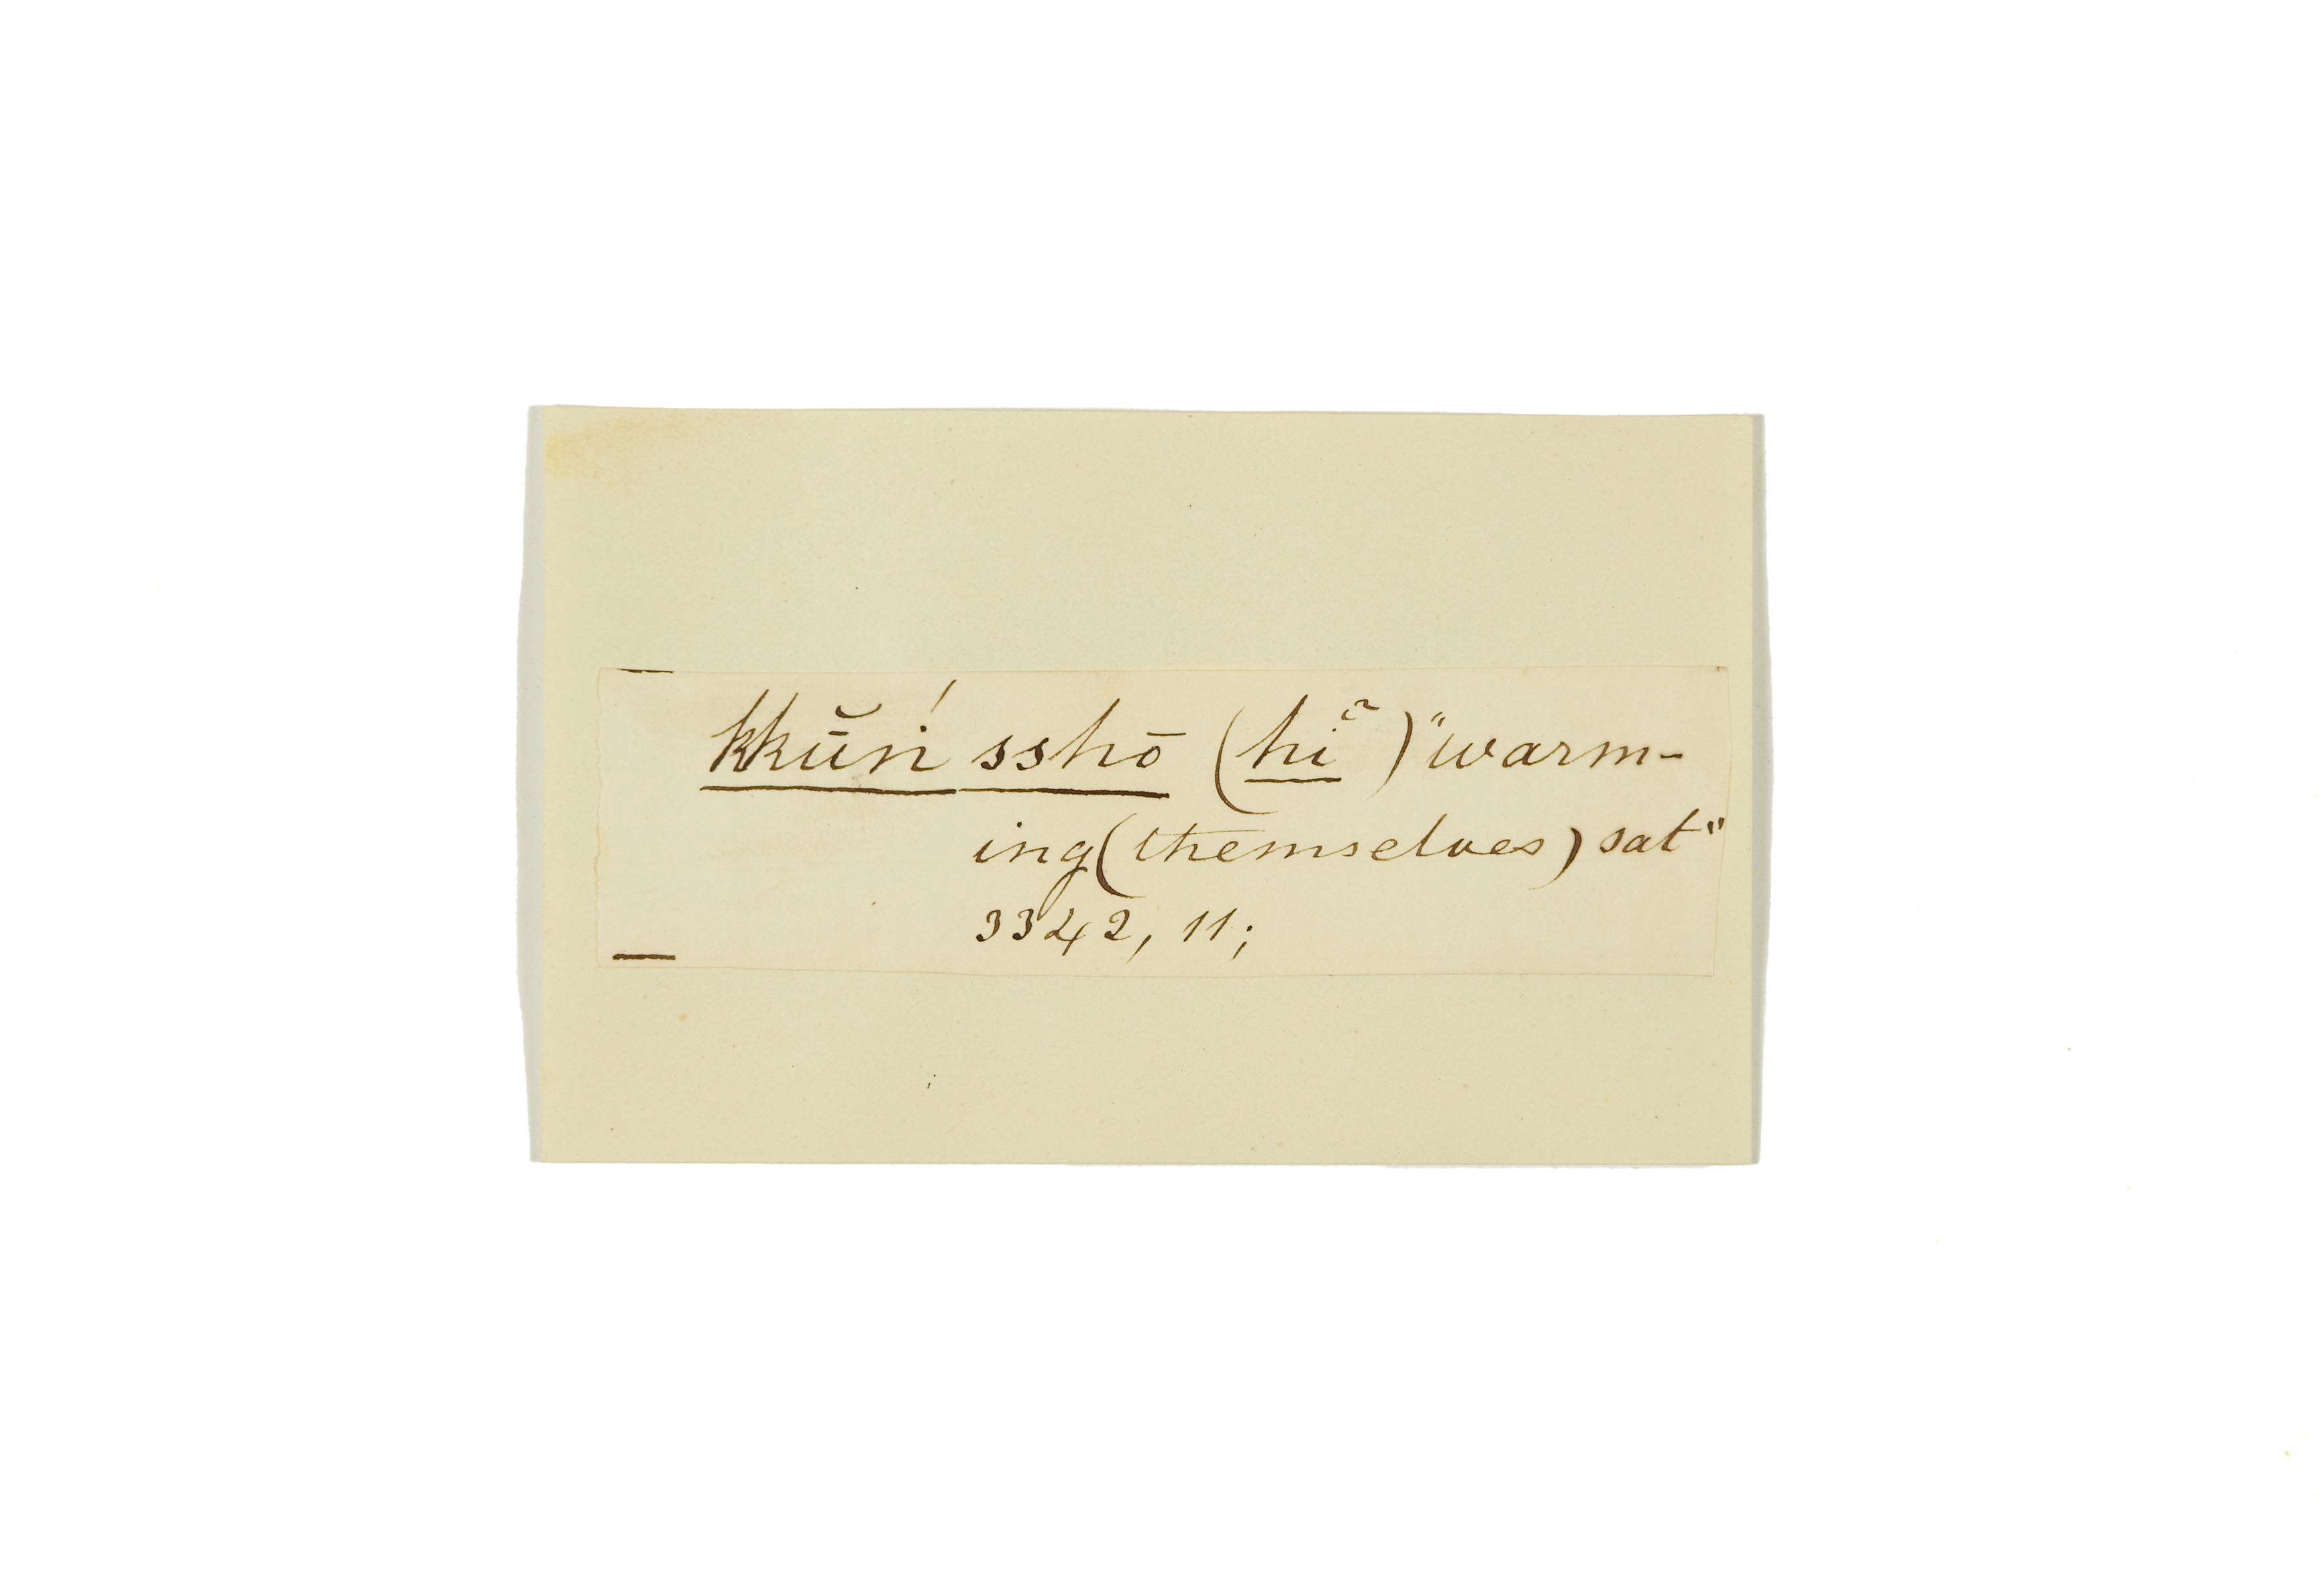 kkŭ̄ṅ́ sshō (hĩ̆) "warm-
ing (themselves) sat"
3342, 11;